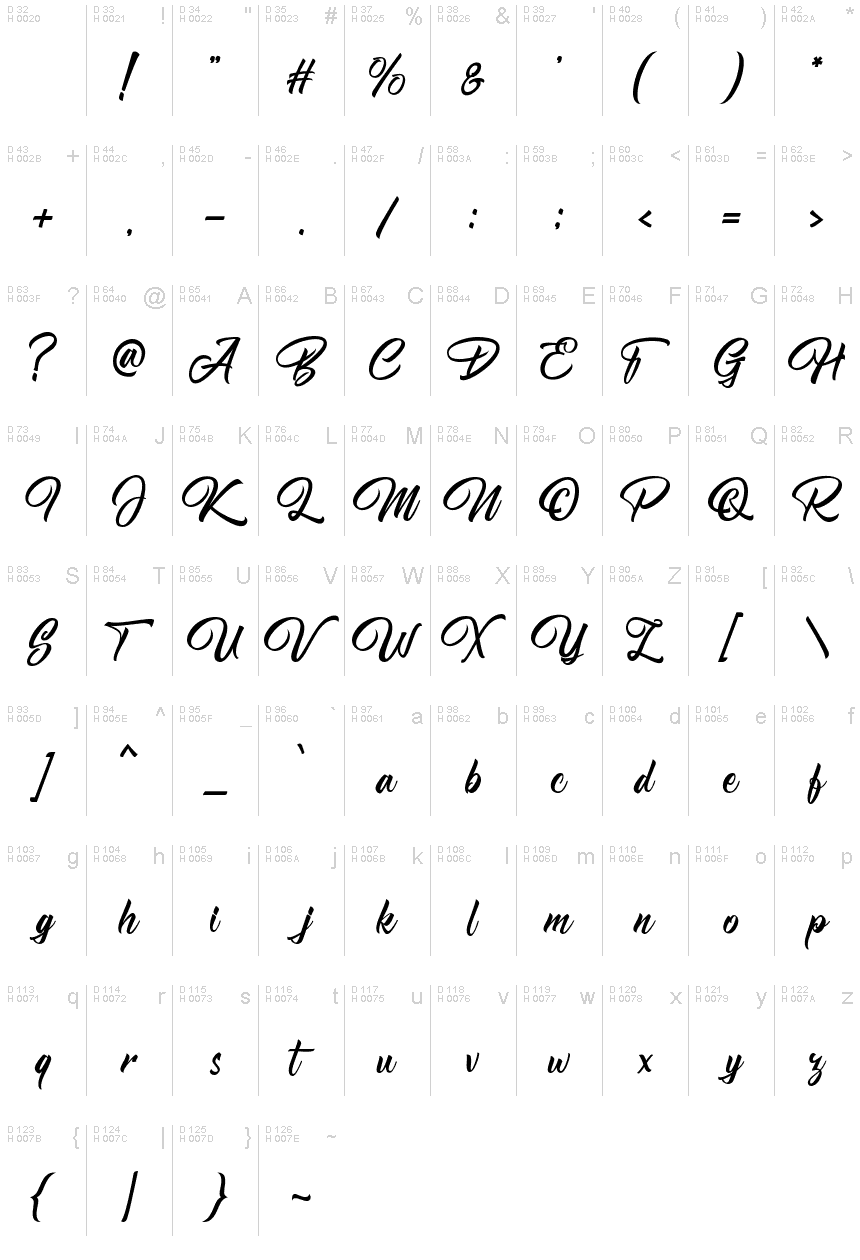 D 32 H 0020 D 33 H 0021 ! D 34 H 0022 " D 35 H 0023 # D 37 H 0025 % D 38 H 0026 & D 39 H 0027 ' D 40 H 0028 ( D 41 H 0029 ) D 42 H 002A *
! " # % & ' ( ) *
D 43 H 002B + D 44 H 002C , D 45 H 002D - D 46 H 002E . D 47 H 002F / D 58 H 003A : D 59 H 003B ; D 60 H 003C < D 61 H 003D = D 62 H 003E >
+ , - . / : ; < = >
D 63 H 003F ? D 64 H 0040 @ D 65 H 0041 A D 66 H 0042 B D 67 H 0043 C D 68 H 0044 D D 69 H 0045 E D 70 H 0046 F D 71 H 0047 G D 72 H 0048 H
? @ A B C D E F G H
D 73 H 0049 I D 74 H 004A J D 75 H 004B K D 76 H 004C L D 77 H 004D M D 78 H 004E N D 79 H 004F O D 80 H 0050 P D 81 H 0051 Q D 82 H 0052 R
I J K L M N O P Q R
D 83 H 0053 S D 84 H 0054 T D 85 H 0055 U D 86 H 0056 V D 87 H 0057 W D 88 H 0058 X D 89 H 0059 Y D 90 H 005A Z D 91 H 005B [ D 92 H 005C \
S T U V W X Y Z [ \
D 93 H 005D ] D 94 H 005E ^ D 95 H 005F _ D 96 H 0060 ` D 97 H 0061 a D 98 H 0062 b D 99 H 0063 c D 100 H 0064 d D 101 H 0065 e D 102 H 0066 f
] ^ _ ` a b c d e f
D 103 H 0067 g D 104 H 0068 h D 105 H 0069 i D 106 H 006A j D 107 H 006B k D 108 H 006C l D 109 H 006D m D 110 H 006E n D 111 H 006F o D 112 H 0070 p
g h i j k l m n o p
D 113 H 0071 q D 114 H 0072 r D 115 H 0073 s D 116 H 0074 t D 117 H 0075 u D 118 H 0076 v D 119 H 0077 w D 120 H 0078 x D 121 H 0079 y D 122 H 007A z
q r s t u v w x y z
D 123 H 007B { D 124 H 007C | D 125 H 007D } D 126 H 007E ~
{ | } ~